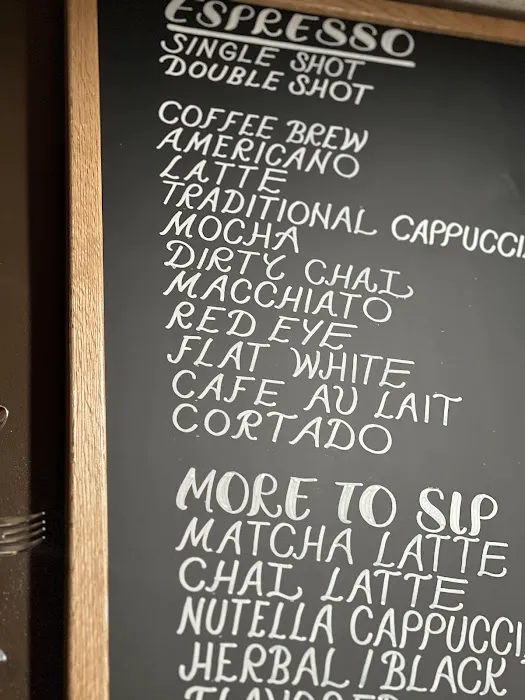 ESPRESSO
SINGLE SHOT
DOUBLE SHOT
COFFEE BREW
AMERICANO
LATTE
TRADITIONAL CAPPUCCI
MOCHA
DIRTY CHAI
MACCHIATO
RED EYE
FLAT WHITE
CAFE AU LAIT
CORTADO
MORE TO SIP
MATCHA LATTE
CHAI LATTE
NUTELLA CAPPUCCI
HERBAL/BLACK